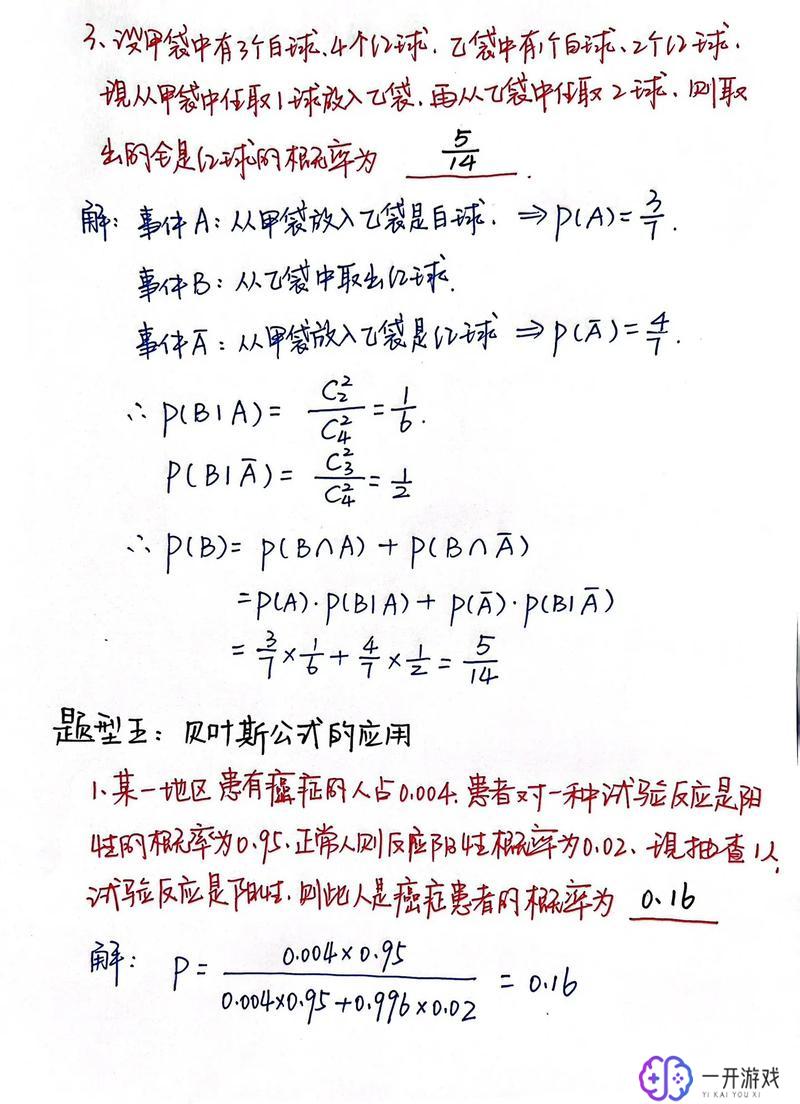 3、设甲袋中有3个白球、4个红球，乙袋中有1个白球、2个红球，
现从甲袋中任取1球放入乙袋，再从乙袋中任取2球，则取
出的全是红球的概率为 5/14 .
解：事件A：从甲袋放入乙袋是白球. ⇒P(A)=3/7.
事件B：从乙袋中取出红球.
事件Ā：从甲袋放入乙袋是红球 ⇒P(Ā)=4/7.
∴ P(B|A)= C₂²/C₄² = 1/6.
P(B|Ā)= C₃²/C₄² = 1/2
∴ P(B)= P(B∩A) + P(B∩Ā)
=P(A)·P(B|A)+ P(Ā)·P(B|Ā)
= 3/7 × 1/6 + 4/7 × 1/2 = 5/14
题型五：贝叶斯公式的应用
1、某一地区患有癌症的人占0.004，患者对一种试验反应是阳
性的概率为0.95，正常人则反应阳性概率为0.02、现抽查1人，
试验反应是阳性，则此人是癌症患者的概率为 0.16
解： P= 0.004×0.95 / 0.004×0.95+0.996×0.02 = 0.16
一开游戏
YI KAI YOU XI